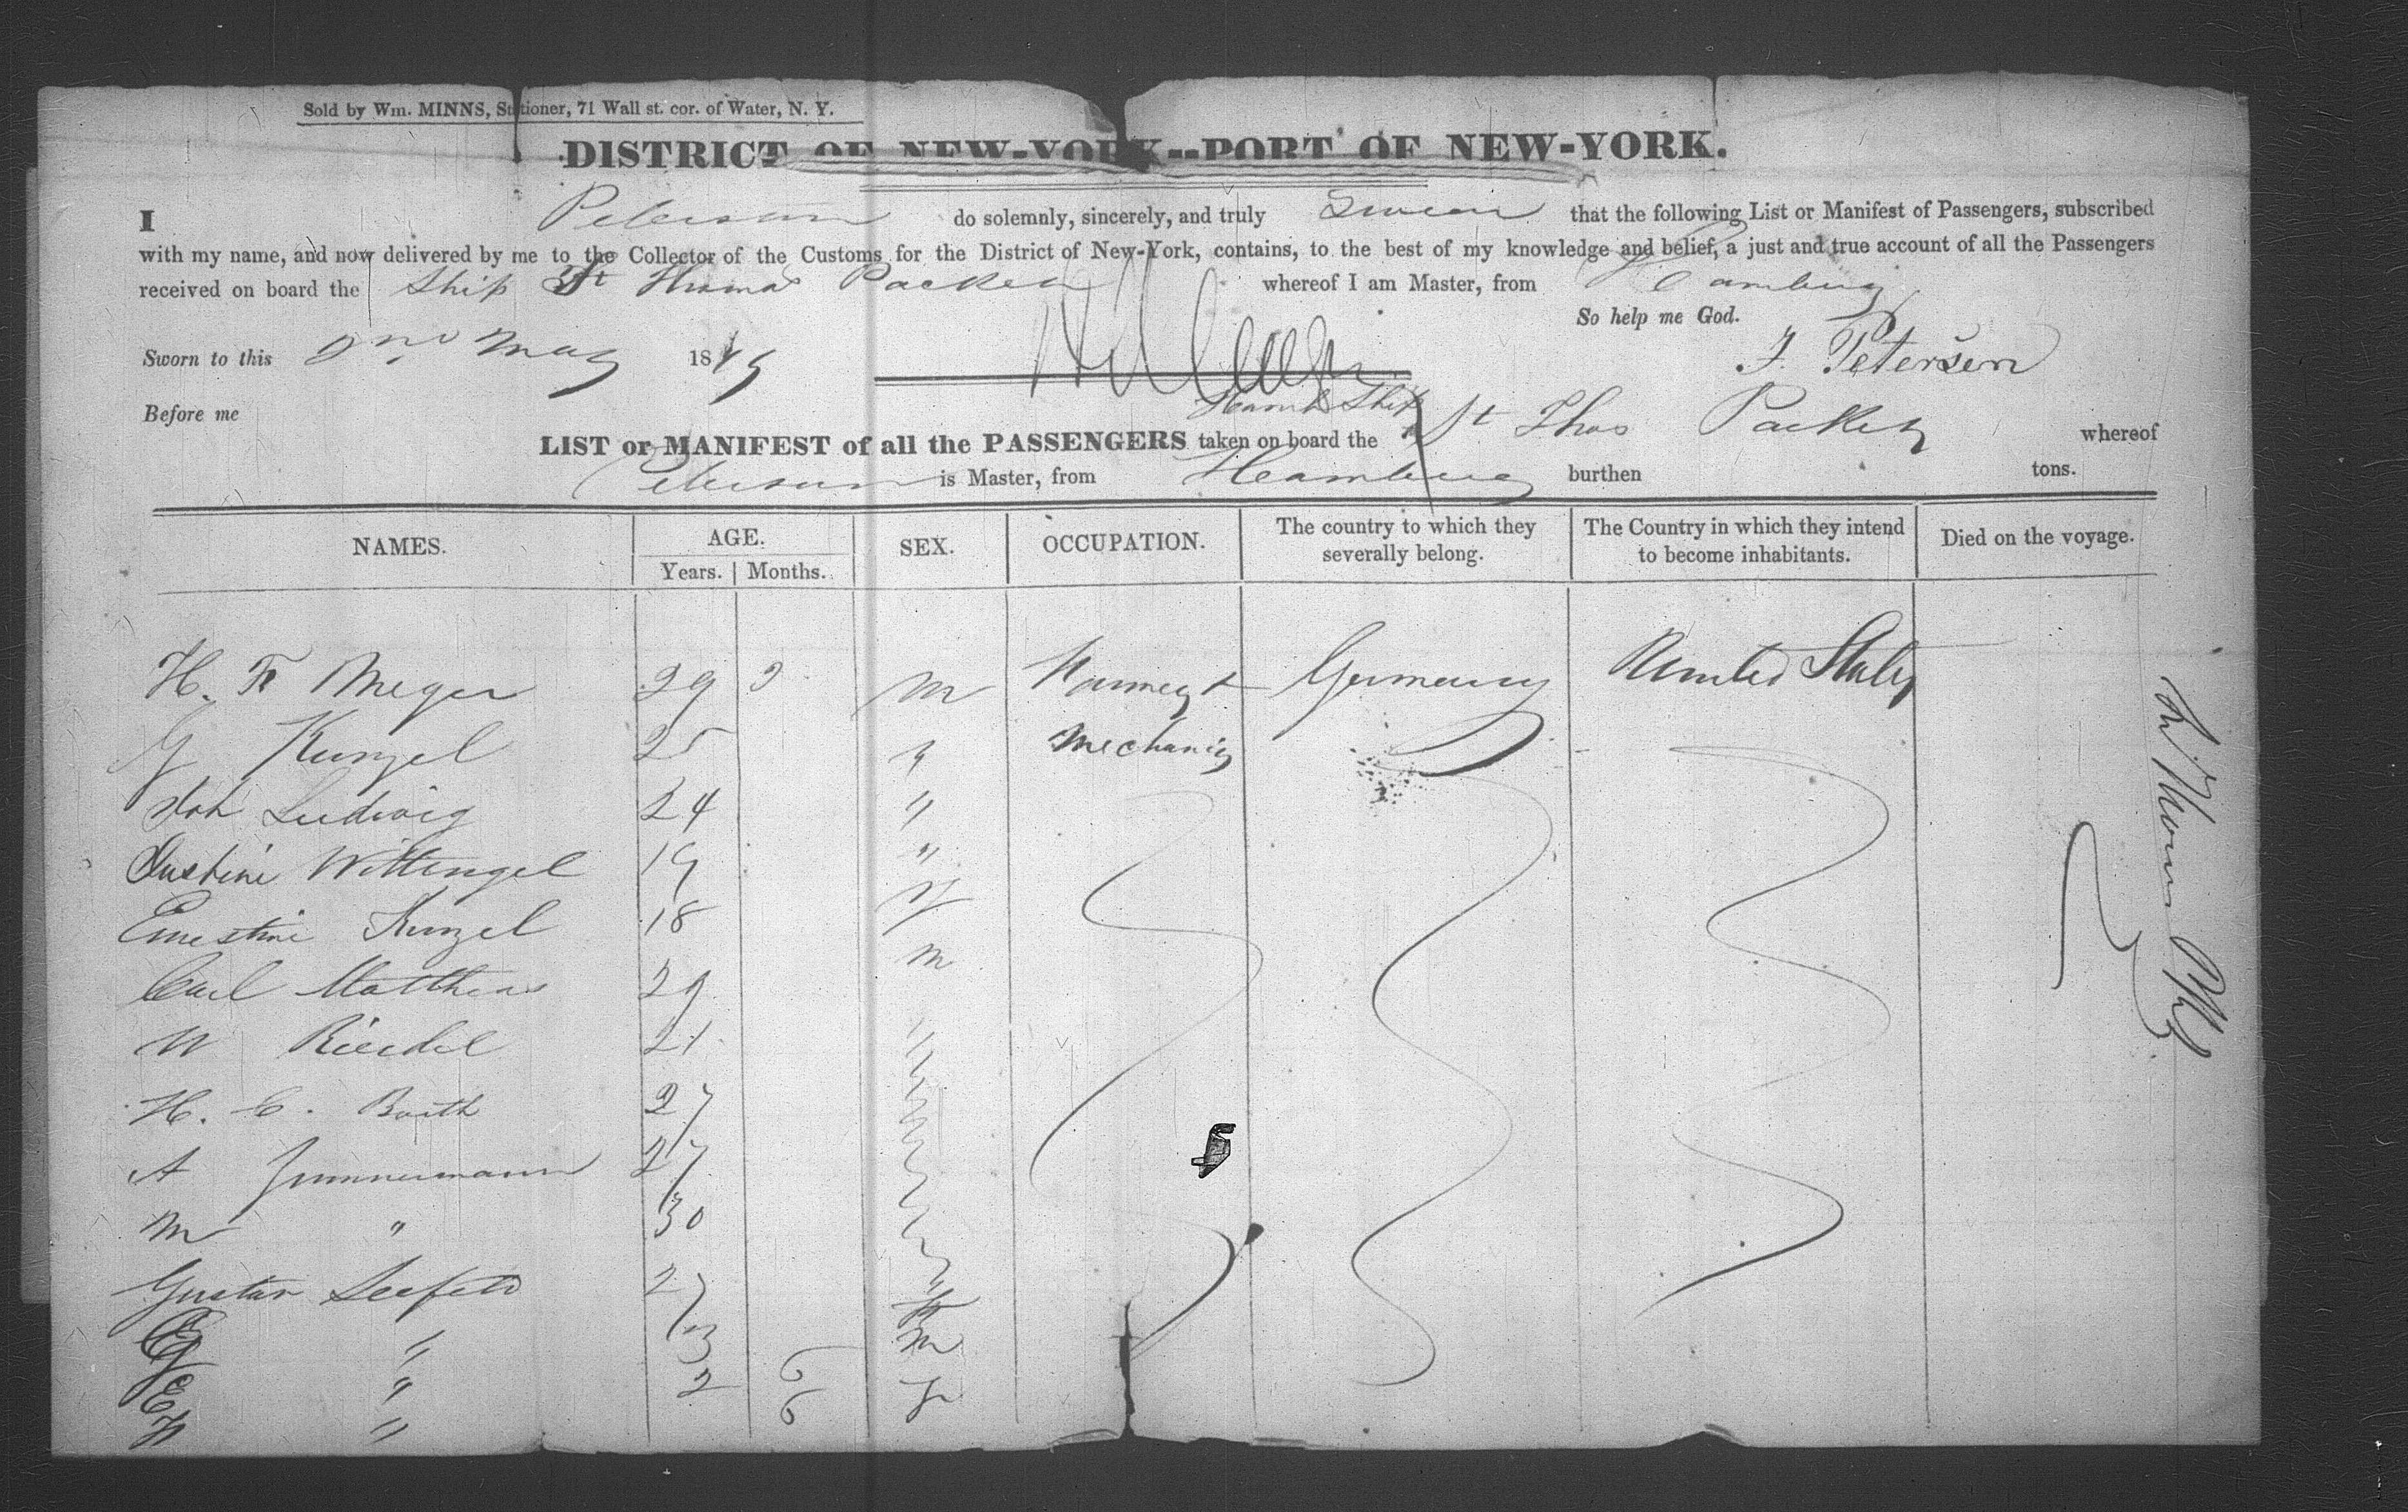 Sold by Wm. MINNS, Stationer, 71 Wall st. cor. of Water, N. Y.
DISTRICT OF NEW-YORK--PORT OF NEW-YORK.
I Petersen do solemnly, sincerely, and truly Swear that the following List or Manifest of Passengers, subscribed
with my name, and now delivered by me to the Collector of the Customs for the District of New-York, contains, to the best of my knowledge and belief, a just and true account of all the Passengers
received on board the Ship St Thomas Packet whereof I am Master, from Hamburg
So help me God.
Sworn to this 2nd May 1849
J. Petersen
Before me
Hamb Ship
LIST or MANIFEST of all the PASSENGERS taken on board the St Thos Packet whereof
Petersen is Master, from Hamburg burthen tons.
NAMES. AGE. SEX. OCCUPATION. The country to which they severally belong. The Country in which they intend to become inhabitants. Died on the voyage.
Years. Months.
H. F Meyer 29 2 M Farmer & Germany United States
G Kunzel 25 " Mechanics
Joh Ludwig 24 "
Justine Wittengel 19 "
Ernestine Kunzel 18 "
Carl Matthias 29 m
W Riedel 21 "
H. C. Barth 27 "
A Zimmermann 27 "
M " 30 "
Gustav Seefeld 27 "
G " 3 m
E " 2 6 f
" 6